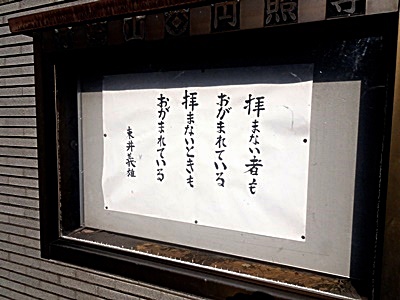 山 円照寺
拝まない者も
おがまれている
拝まないときも
おがまれている
東井義雄